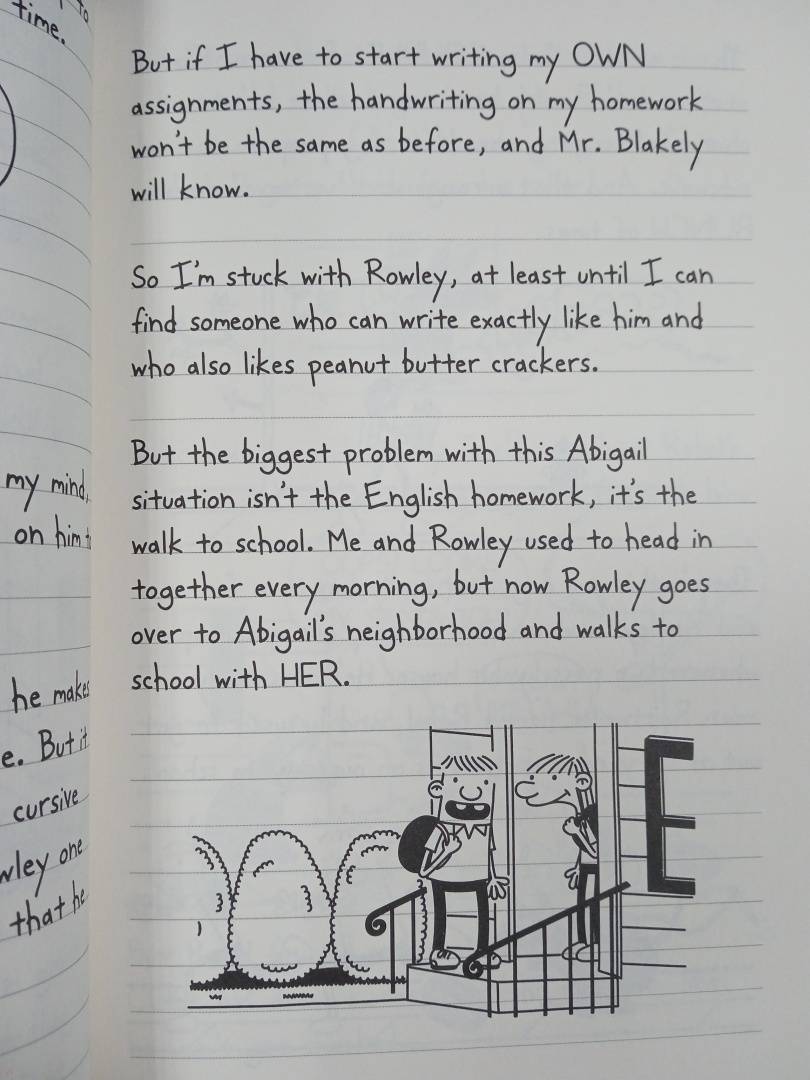 time.
to
my mind,
on him
he makes
e. But it
cursive
wley one
that he
But if I have to start writing my OWN
assignments, the handwriting on my homework
won't be the same as before, and Mr. Blakely
will know.
So I'm stuck with Rowley, at least until I can
find someone who can write exactly like him and
who also likes peanut butter crackers.
But the biggest problem with this Abigail
situation isn't the English homework, it's the
walk to school. Me and Rowley used to head in
together every morning, but now Rowley goes
over to Abigail's neighborhood and walks to
school with HER.
E